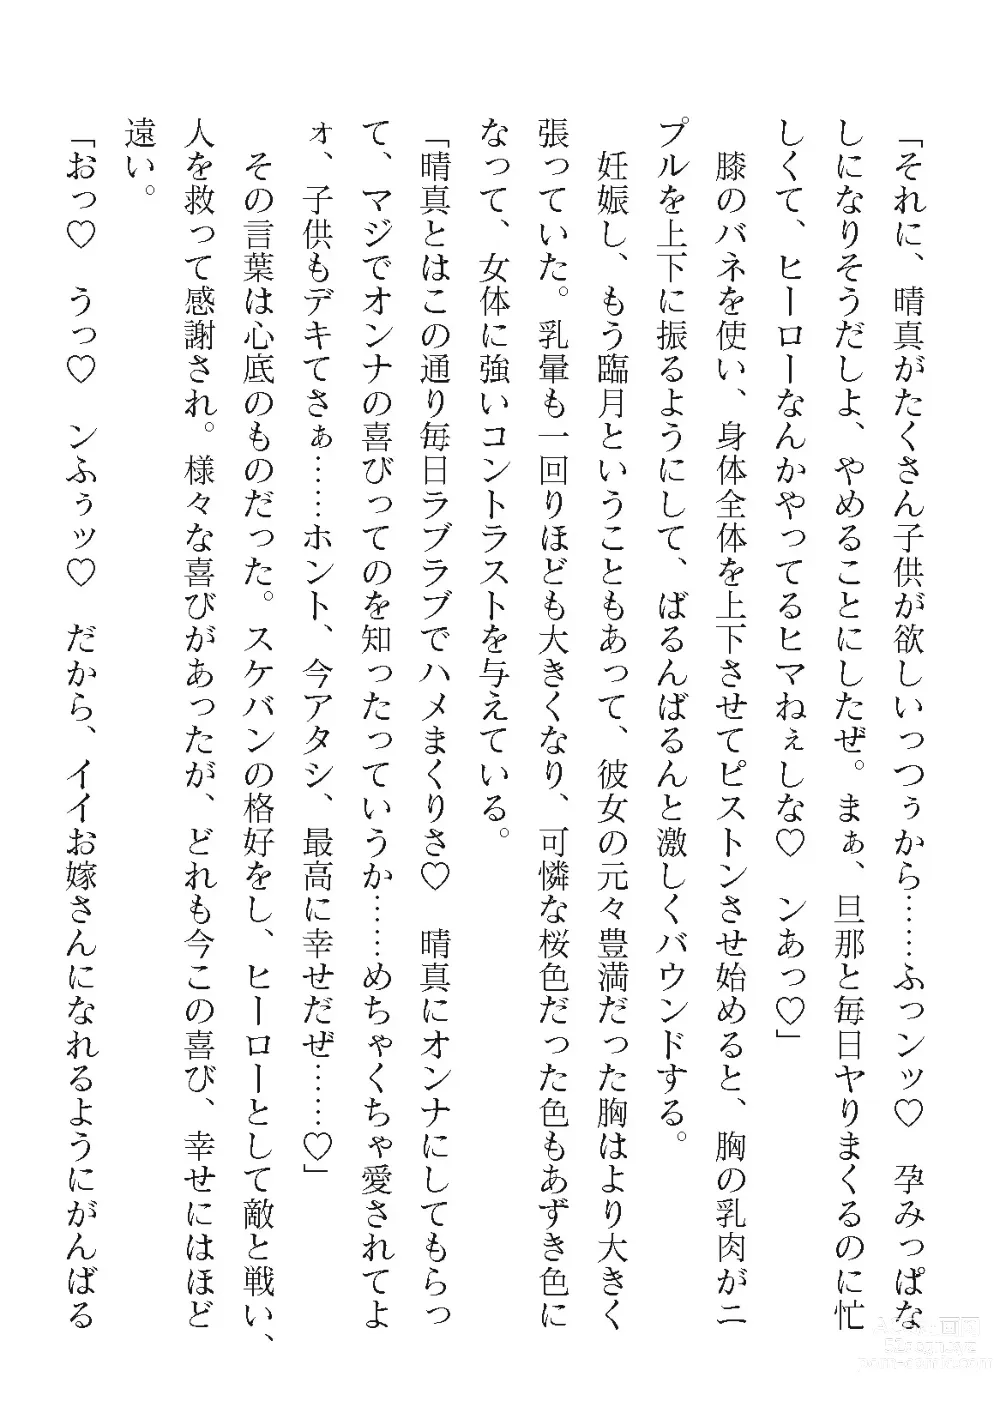 「それに、晴真がたくさん子供が欲しいっつぅから……ふっンッ♡　孕みっぱな
しになりそうだしよ、やめることにしたぜ。まぁ、旦那と毎日ヤりまくるのに忙
しくて、ヒーローなんかやってるヒマねぇしな♡　ンあっ♡」
　膝のバネを使い、身体全体を上下させてピストンさせ始めると、胸の乳肉がニ
プルを上下に振るようにして、ばるんばるんと激しくバウンドする。
　妊娠し、もう臨月ということもあって、彼女の元々豊満だった胸はより大きく
張っていた。乳暈も一回りほども大きくなり、可憐な桜色だった色もあずき色に
なって、女体に強いコントラストを与えている。
「晴真とはこの通り毎日ラブラブでハメまくりさ♡　晴真にオンナにしてもらっ
て、マジでオンナの喜びってのを知ったっていうか……めちゃくちゃ愛されてよ
ォ、子供もデキてさぁ……ホント、今アタシ、最高に幸せだぜ……♡」
　その言葉は心底のものだった。スケバンの格好をし、ヒーローとして敵と戦い、
人を救って感謝され。様々な喜びがあったが、どれも今この喜び、幸せにはほど
遠い。
「おっ♡　うっ♡　ンふぅッ♡　だから、イイお嫁さんになれるようにがんばる